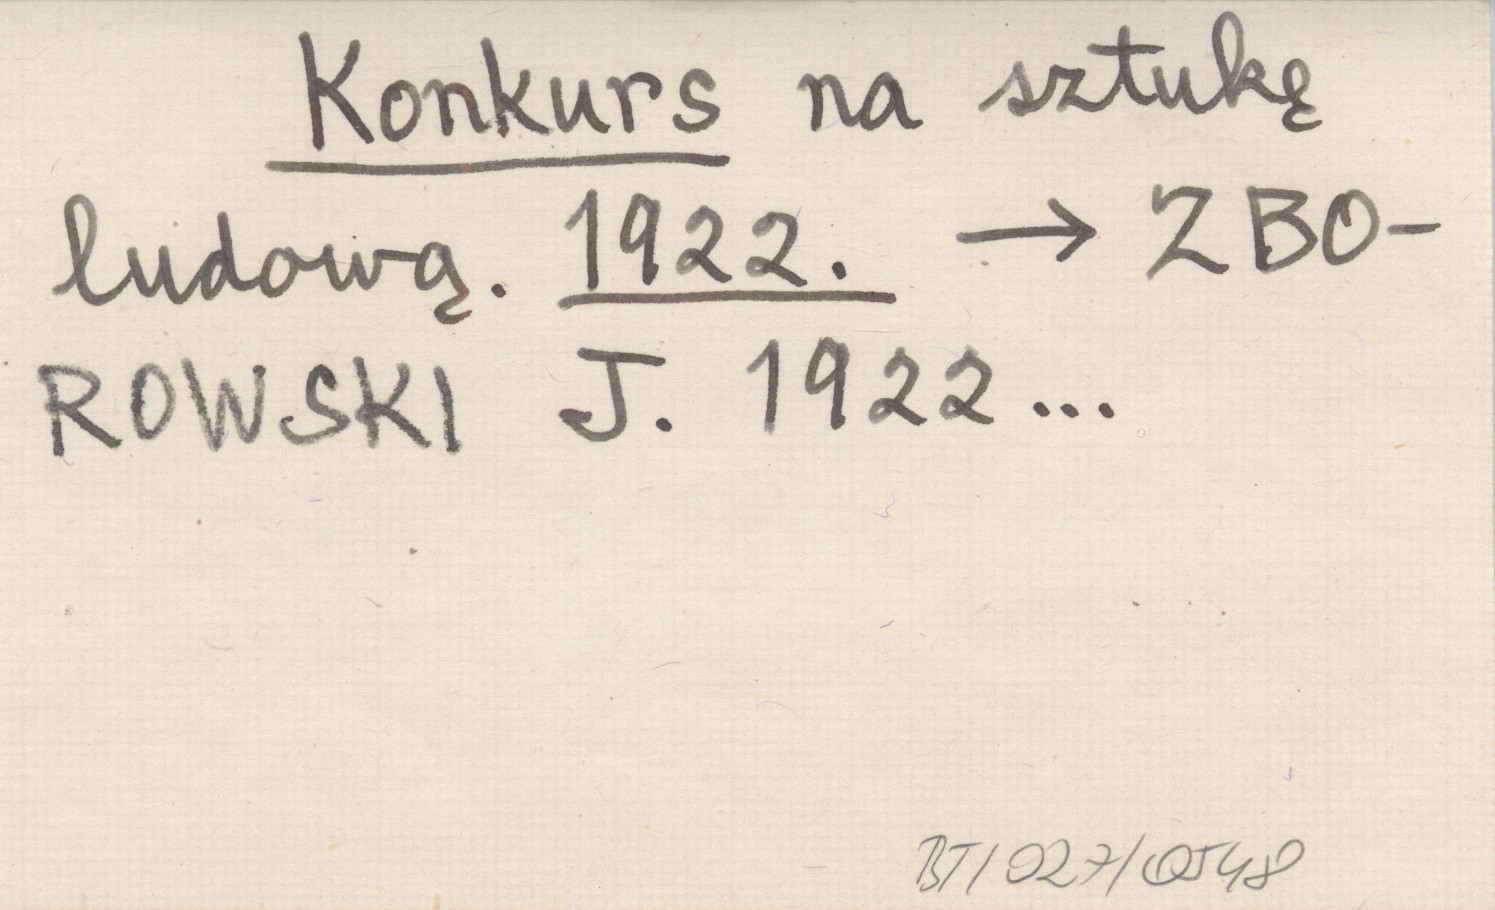 Konkurs na sztukę
ludową. 1922. → ZBO-
ROWSKI J. 1922...
BT/027/0548